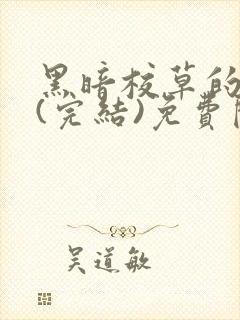 黑暗校草的
(完結)免費
吴道敏